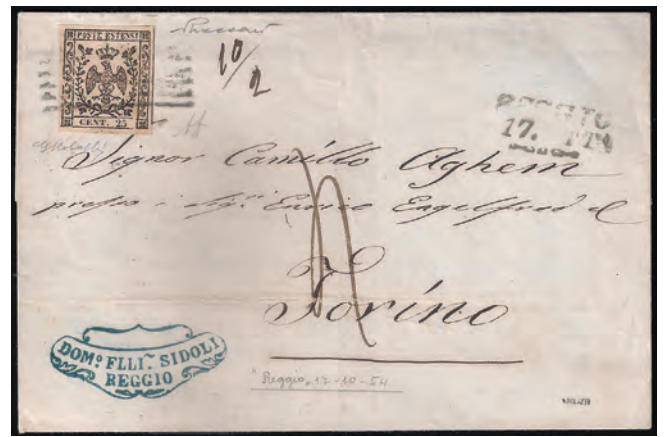 POSTE ESTENSI
CENT. 25
10/2
REGGIO
17. OTT
Signor Camillo Aghem
presso i Sig.ri Enrico Engelfred e
Torino
DOM.º FLLI.~ SIDOLI
REGGIO
Reggio, 17-10-54